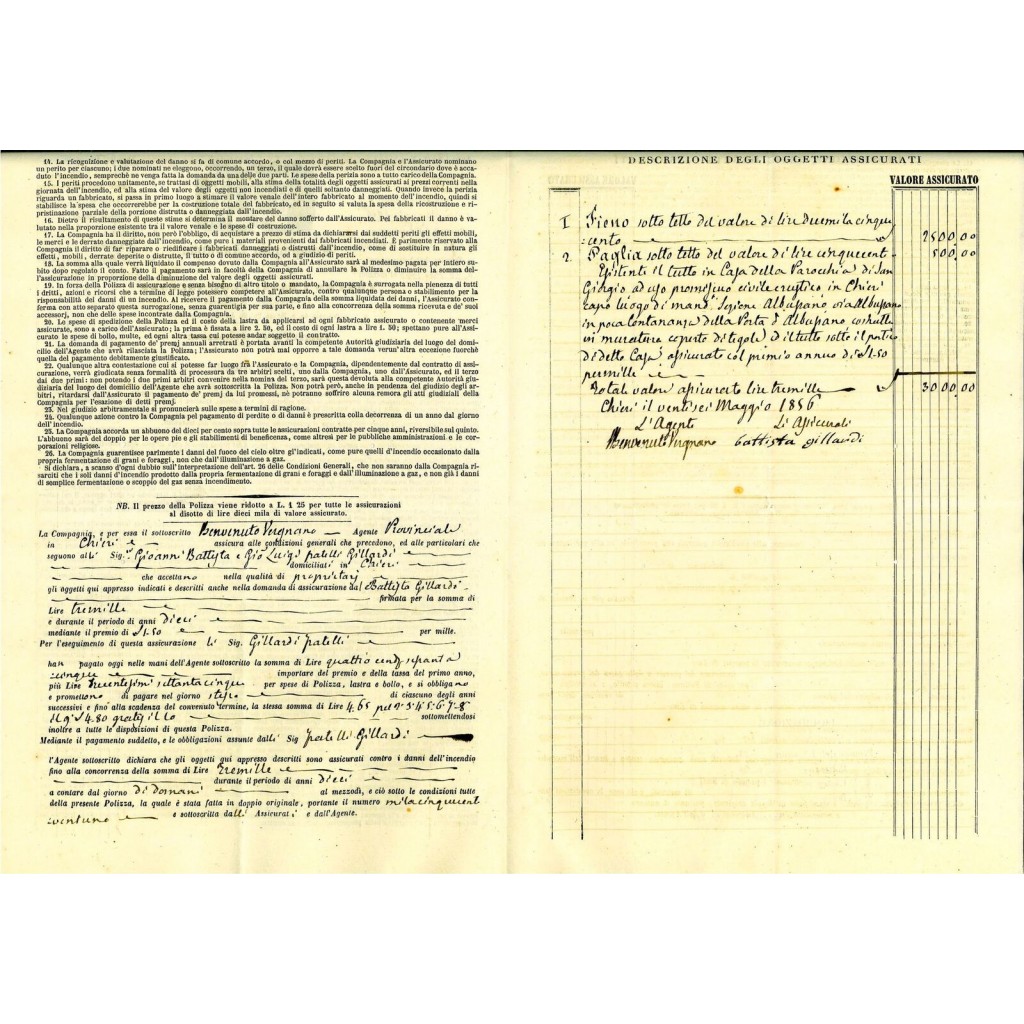 14. La ricognizione e valutazione del danno si fa di comune accordo, o col mezzo di periti. La Compagnia e l'Assicurato nominano
un perito per ciascuno; i due nominati ne eleggono, occorrendo, un terzo, il quale dovrà essere scelto fuori del circondario dove è acca-
duto l'incendio, semprechè ne venga fatta la domanda da una delle due parti. Le spese della perizia sono a tutto carico della Compagnia.
15. I periti procedono unitamente, se trattasi di oggetti mobili, alla stima della totalità degli oggetti assicurati ai prezzi correnti nella
giornata dell'incendio, ed alla stima del valore degli oggetti non incendiati e di quelli soltanto danneggiati. Quando invece la perizia
riguarda un fabbricato, si passa in primo luogo a stimare il valore venale dell'intero fabbricato al momento dell'incendio, quindi si
stabilisce la spesa che occorrerebbe per la costruzione totale del fabbricato, ed in seguito si valuta la spesa della ricostruzione e ri-
pristinazione parziale della porzione distrutta o danneggiata dall'incendio.
16. Dietro il risultamento di queste stime si determina il montare del danno sofferto dall'Assicurato. Pei fabbricati il danno è va-
lutato nella proporzione esistente tra il valore venale e le spese di costruzione.
17. La Compagnia ha il diritto, non però l'obbligo, di acquistare a prezzo di stima da dichiararsi dai suddetti periti gli effetti mobili,
le merci e le derrate danneggiate dall'incendio, come pure i materiali provenienti dai fabbricati incendiati. È parimente riservato alla
Compagnia il diritto di far riparare o riedificare i fabbricati danneggiati o distrutti dall'incendio, come di sostituire in natura gli
effetti, mobili, derrate deperite o distrutte, il tutto o di comune accordo, od a giudizio di periti.
18. La somma alla quale verrà liquidato il compenso dovuto dalla Compagnia all'Assicurato sarà al medesimo pagata per intiero su-
bito dopo regolato il conto. Fatto il pagamento sarà in facoltà della Compagnia di annullare la Polizza o diminuire la somma del-
l'assicurazione in proporzione della diminuzione del valore degli oggetti assicurati.
19. In forza della Polizza di assicurazione e senza bisogno di altro titolo o mandato, la Compagnia è surrogata nella pienezza di tutti
i dritti, azioni e ricorsi che a termine di legge potessero competere all'Assicurato, contro qualunque persona o stabilimento per la
risponsabilità dei danni di un incendio. Al ricevere il pagamento dalla Compagnia della somma liquidata dei danni, l'Assicurato con-
ferma con atto separato questa surrogazione, senza guarentigia per sua parte, e fino alla concorrenza della somma ricevuta e de' suoi
accessorj, non che delle spese incontrate dalla Compagnia.
20. Le spese di spedizione della Polizza ed il costo della lastra da applicarsi ad ogni fabbricato assicurato o contenente merci
assicurate, sono a carico dell'Assicurato; la prima è fissata a lire 2. 50, ed il costo di ogni lastra a lire 1. 50; spettano pure all'Assi-
curato le spese di bollo, multe, ed ogni altra tassa cui potesse andar soggetto il contratto.
21. La domanda di pagamento de' premj annuali arretrati è portata avanti la competente Autorità giudiziaria del luogo del domi-
cilio dell'Agente che avrà rilasciata la Polizza; l'Assicurato non potrà mai opporre a tale domanda verun'altra eccezione fuorchè
quella del pagamento debitamente giustificato.
22. Qualunque altra contestazione cui si potesse far luogo fra l'Assicurato e la Compagnia, dipendentemente dal contratto di assi-
curazione, verrà giudicata senza formalità di processura da tre arbitri scelti, uno dalla Compagnia, uno dall'Assicurato, ed il terzo
dai due primi: non potendo i due primi arbitri convenire nella nomina del terzo, sarà questa devoluta alla competente Autorità giu-
diziaria del luogo del domicilio dell'Agente che avrà sottoscritta la Polizza. Non potrà però, anche in pendenza del giudizio degli ar-
bitri, ritardarsi dall'Assicurato il pagamento de' premj da lui promessi, nè potranno soffrire alcuna remora gli atti giudiziali della
Compagnia per l'esazione di detti premj.
23. Nel giudizio arbitramentale si pronuncierà sulle spese a termini di ragione.
24. Qualunque azione contro la Compagnia pel pagamento di perdite o di danni è prescritta colla decorrenza di un anno dal giorno
dell'incendio.
25. La Compagnia accorda un abbuono del dieci per cento sopra tutte le assicurazioni contratte per cinque anni, riversibile sul quinto.
L'abbuono sarà del doppio per le opere pie e gli stabilimenti di beneficenza, come altresì per le pubbliche amministrazioni e le cor-
porazioni religiose.
26. La Compagnia guarentisce parimente i danni del fuoco del cielo oltre gl'indicati, come pure quelli d'incendio occasionato dalla
propria fermentazione di grani e foraggi, non che dall'illuminazione a gaz.
Si dichiara, a scanso d'ogni dubbio sull'interpretazione dell'art. 26 delle Condizioni Generali, che non saranno dalla Compagnia ri-
sarciti che i soli danni d'incendio prodotto dalla propria fermentazione di grani e foraggi e dall'illuminazione a gaz, e non già i danni
di semplice fermentazione o scoppio del gaz senza incendimento.
NB. Il prezzo della Polizza viene ridotto a L. 1 25 per tutte le assicurazioni
al disotto di lire dieci mila di valore assicurato.
La Compagnia, e per essa il sottoscritto Benvenuto Vergnano Agente Provinciale
in Chieri assicura alle condizioni generali che precedono, ed alle particolari che
seguono alli Sig.ri Gioanni Battista e Gio Luigi fratelli Gillardi
domiciliati in Chieri
che accettano nella qualità di proprietarj
gli oggetti qui appresso indicati e descritti anche nella domanda di assicurazione dal Battista Gillardi
firmata per la somma di
Lire tremille
e durante il periodo di anni dieci
mediante il premio di £1.50 per mille.
Per l'eseguimento di questa assicurazione li Sig. Gillardi fratelli
han pagato oggi nelle mani dell'Agente sottoscritto la somma di Lire quattro cent. settanta
cinque importare del premio e della tassa del primo anno,
più Lire settantacinque per spese di Polizza, lastra e bollo, e si obbligano
e promettono di pagare nel giorno stesso di ciascuno degli anni
successivi e fino alla scadenza del convenuto termine, la stessa somma di Lire 4.65 pel 2 3 4 5 6 7 8
il 9 4.80 gratis il 10 sottomettendosi
inoltre a tutte le disposizioni di questa Polizza.
Mediante il pagamento suddetto, e le obbligazioni assunte dalli Sig fratelli Gillardi
l'Agente sottoscritto dichiara che gli oggetti qui appresso descritti sono assicurati contro i danni dell'incendio
fino alla concorrenza della somma di Lire Tremille
durante il periodo di anni dieci
a contare dal giorno di domani al mezzodì, e ciò sotto le condizioni tutte
della presente Polizza, la quale è stata fatta in doppio originale, portante il numero millecinquecent
ventuno e sottoscritta dalli Assicurati e dall'Agente.
DESCRIZIONE DEGLI OGGETTI ASSICURATI
VALORE ASSICURATO
1 Fieno sotto tetto del valore di lire duemila cinque
cento 2500,00
2. Paglia sotto tetto del valore di lire cinquecento 500,00
Esistenti il tutto in Casa della Parochia di San
Giorgio ad uso promiscuo civile e rustico in Chieri
capo luogo di mand. Regione Albussano via Albussano
in poca lontananza della Porta d'Albussano costrutta
in muratura coperto di tegole il tutto sotto il portico
di detta Casa assicurato col premio annuo di £1.50
per mille
Total valor assicurato lire tremille 3000,00
Chieri il ventisei Maggio 1856
L'Agente Li Assicurati
Benvenuto Vergnano battista gillardi